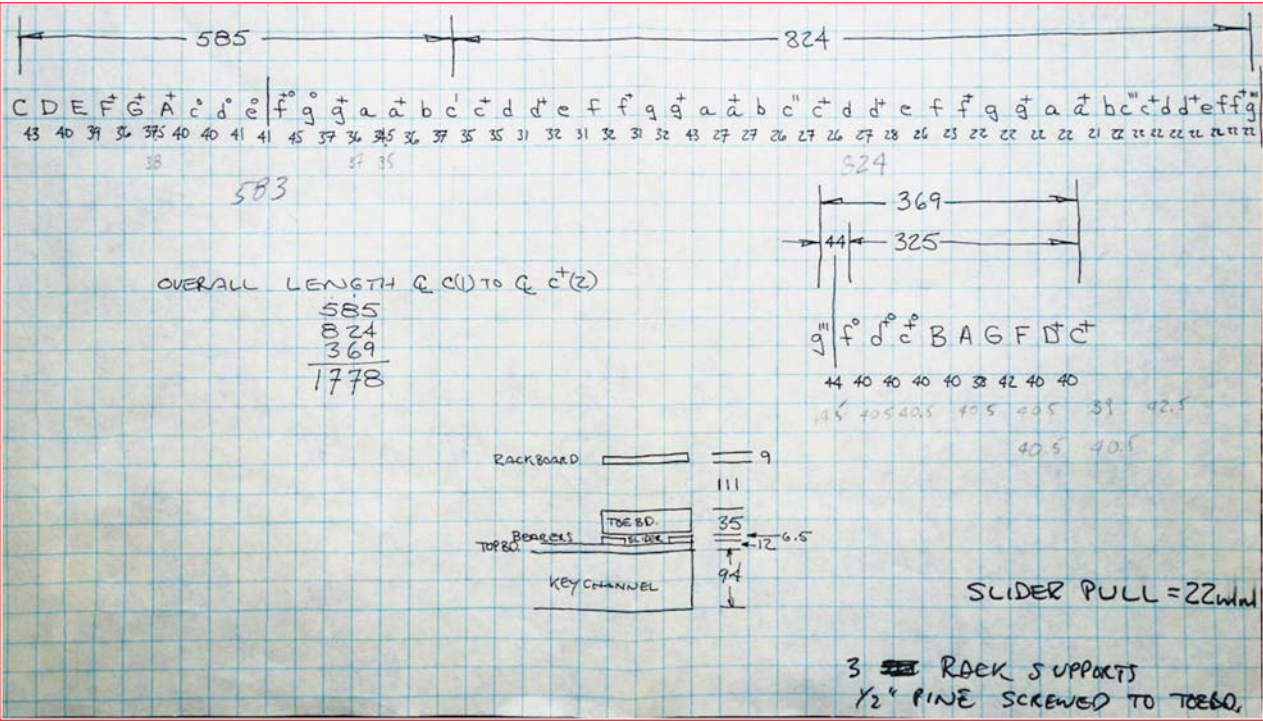 585 824
C D E F⁺ G⁺ A⁺ c° d° e° f⁺° g° g⁺ a a⁺ b c' c⁺ d d⁺ e f f⁺ g g⁺ a a⁺ b c" c⁺ d d⁺ e f f⁺ g g⁺ a a⁺ b c''' c⁺ d d⁺ e f f⁺ g'''
43 40 39 36 37.5 40 40 41 41 45 37 36 34.5 36 37 35 35 31 32 31 32 31 32 43 27 27 26 27 26 27 28 26 23 22 22 22 22 22 21 22 22 22 22 22 22 22 22
38 37 35 824
583
369
44 325
OVERALL LENGTH ℄ C(1) TO ℄ C⁺(2)
585
824
369
1778
g''' f° d⁺° c⁺° B A G F D⁺ C⁺
44 40 40 40 40 38 42 40 40
45 40.5 40.5 40.5 40.5 39 42.5
40.5 40.5
RACKBOARD 9
111
TOEBD. 35
BEARERS SLIDER 6.5
TOPBD. 12
KEYCHANNEL 94
SLIDER PULL = 22mm
3 RACK SUPPORTS
1/2" PINE SCREWED TO TOEBD.